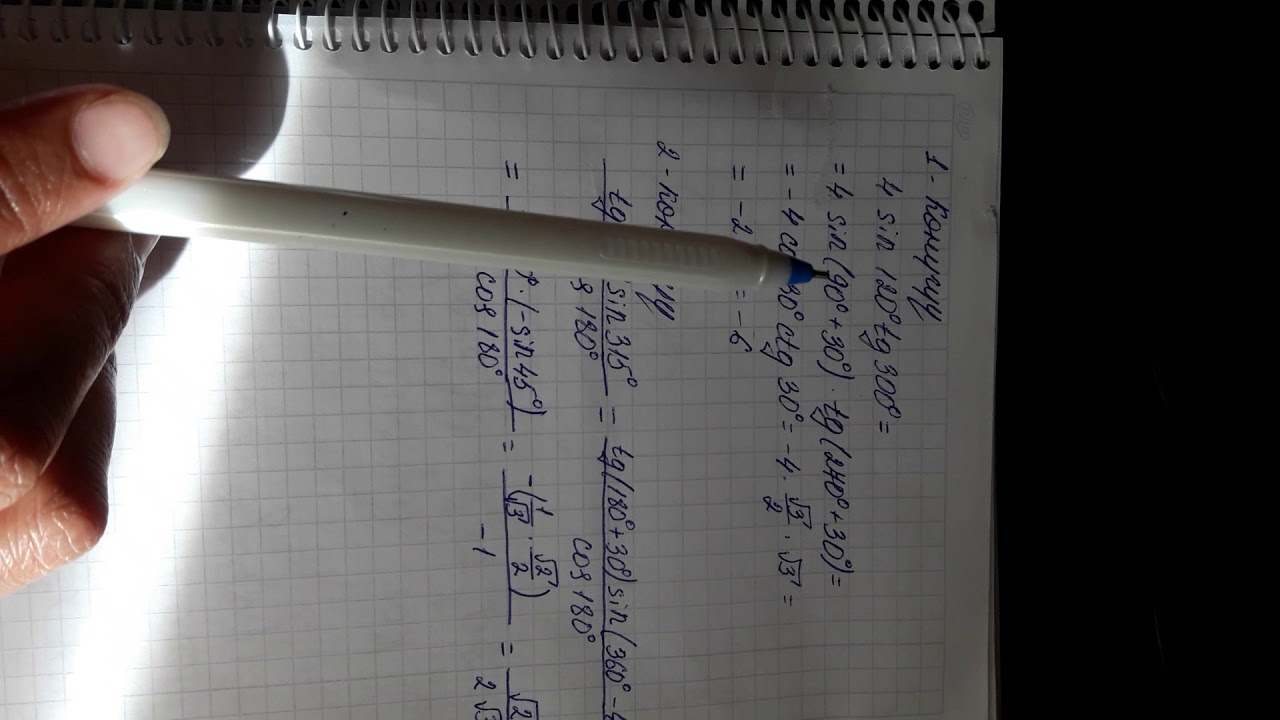 1 - көнүгүү
4 sin 120° tg 300° =
= 4 sin (90° + 30°) · tg (240° + 30°) =
= -4 30° ctg 30° = -4 · √3/2 · √3 =
= -2 = -6
2 -
tg sin 315° / 180° = tg (180° + 30°) sin (360° -
cos 180°
= · (-sin 45°) / cos 180° = -(1/√3 · √2/2) / -1 = √2 / 2√3